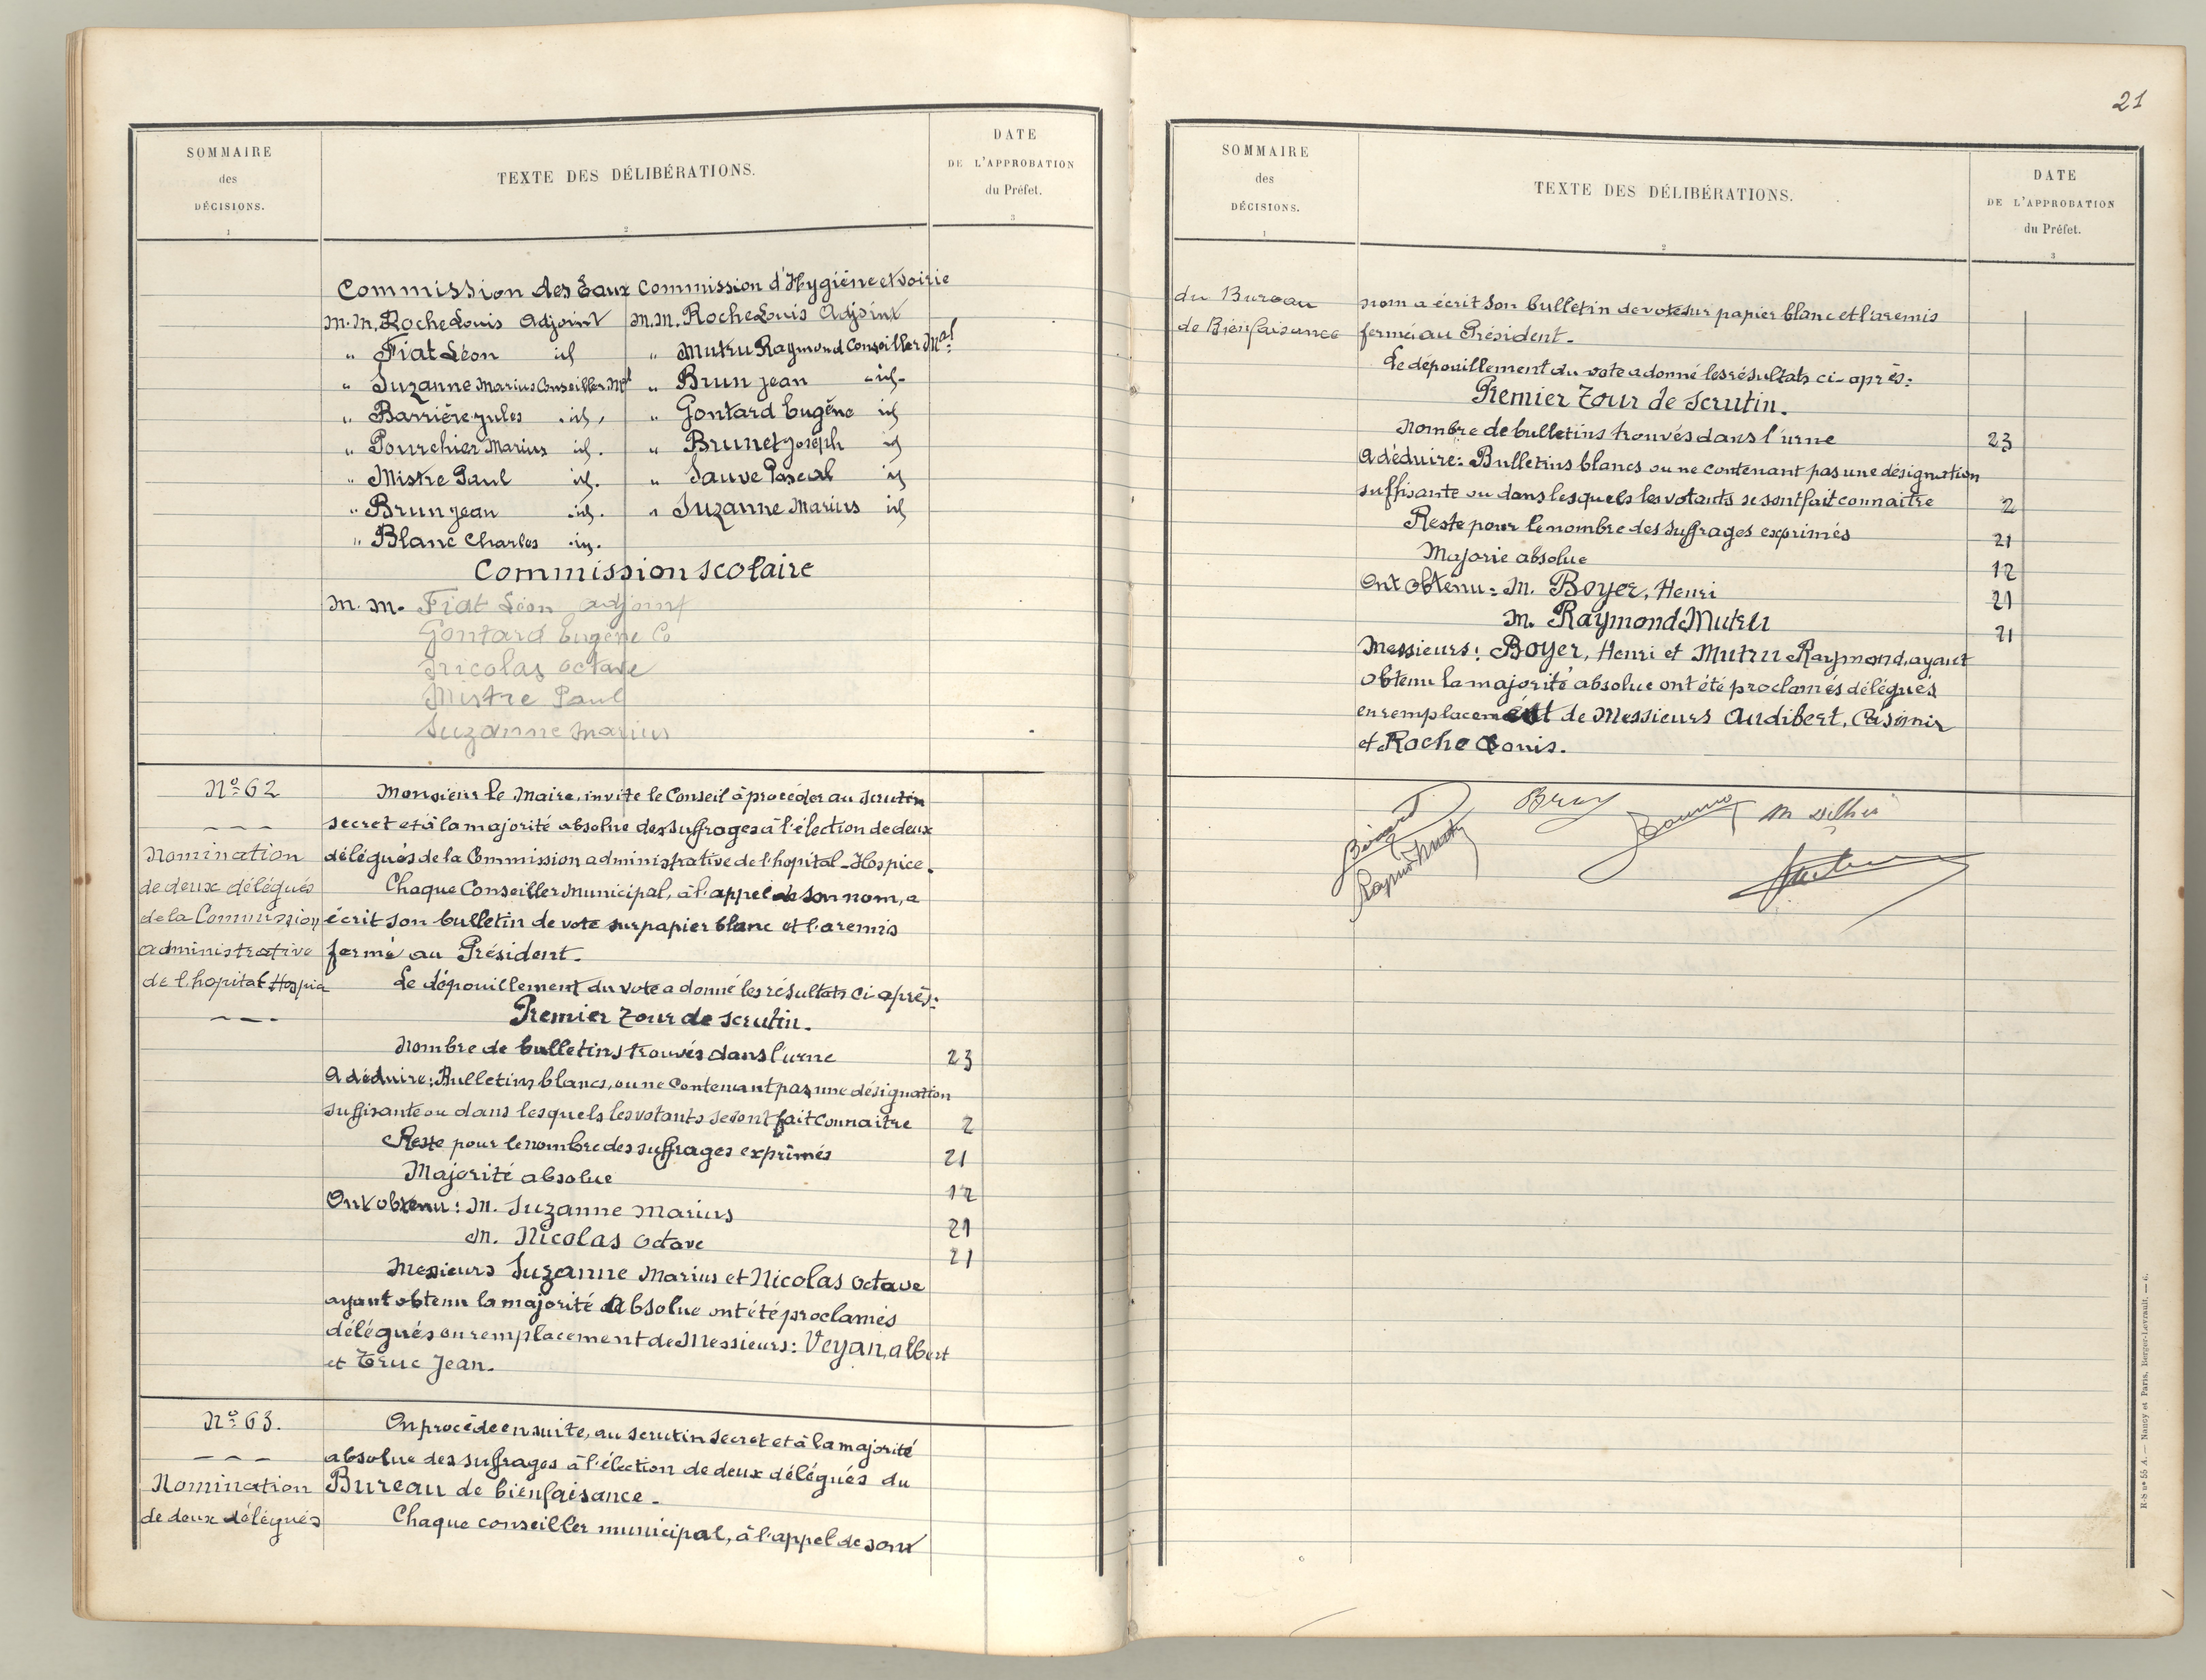 SOMMAIRE
des
DÉCISIONS.
1
TEXTE DES DÉLIBÉRATIONS.
2
DATE
DE L'APPROBATION
du Préfet.
3
Commission des Eaux
M.M. Roche Louis Adjoint
" Fiat Léon id
" Suzanne Marius Conseiller Mal
" Barrière Jules id
" Pourchier Marius id.
" Mistre Paul id.
" Brun Jean id.
" Blanc Charles id.
Commission d'Hygiène et voirie
M.M. Roche Louis Adjoint
" Mutru Raymond Conseiller Mal
" Brun Jean id
" Gontard Eugène id
" Brunet Joseph id
" Sauve Pascal id
" Suzanne Marius id
Commission scolaire
M.M. Fiat Léon adjoint
Gontard Eugène Co
Nicolas Octave
Mistre Paul
Suzanne Marius
No 62
Nomination
de deux délégués
de la Commission
administrative
de l'hopital Hospice
Monsieur le Maire, invite le Conseil à procéder au scrutin
secret et à la majorité absolue des suffrages à l'élection de deux
délégués de la Commission administrative de l'hopital-Hospice.
Chaque Conseiller Municipal, à l'appel de son nom, a
écrit son bulletin de vote sur papier blanc et l'a remis
fermé au Président.
Le dépouillement du vote a donné les résultats ci-après:
Premier tour de scrutin.
Nombre de bulletins trouvés dans l'urne 23
A déduire: Bulletins blancs, ou ne contenant pas une désignation
suffisante ou dans lesquels les votants se sont fait connaitre 2
Reste pour le nombre des suffrages exprimés 21
Majorité absolue 12
Ont obtenu: M. Suzanne Marius 21
M. Nicolas Octave 21
Messieurs Suzanne Marius et Nicolas Octave
ayant obtenu la majorité absolue ont été proclamés
délégués en remplacement de Messieurs: Veyan, Albert
et Truc Jean.
No 63.
Nomination
de deux délégués
On procède ensuite, au scrutin secret et à la majorité
absolue des suffrages à l'élection de deux délégués du
Bureau de bienfaisance.
Chaque conseiller municipal, à l'appel de son
21
SOMMAIRE
des
DÉCISIONS.
1
TEXTE DES DÉLIBÉRATIONS.
2
DATE
DE L'APPROBATION
du Préfet.
3
du Bureau
de Bienfaisance
nom a écrit son bulletin de vote sur papier blanc et l'a remis
fermé au Président.
Le dépouillement du vote a donné les résultats ci-après:
Premier tour de scrutin.
Nombre de bulletins trouvés dans l'urne 23
A déduire: Bulletins blancs ou ne contenant pas une désignation
suffisante ou dans lesquels les votants se sont fait connaitre 2
Reste pour le nombre des suffrages exprimés 21
Majorie absolue 12
Ont obtenu: M. Boyer, Henri 21
M. Raymond Mutru 21
Messieurs: Boyer, Henri et Mutru Raymond, ayant
obtenu la majorité absolue ont été proclamés délégués
en remplacement de Messieurs Audibert, Casimir
et Roche Louis.
R-S no 55 A. — Nancy et Paris, Berger-Levrault. — 6.